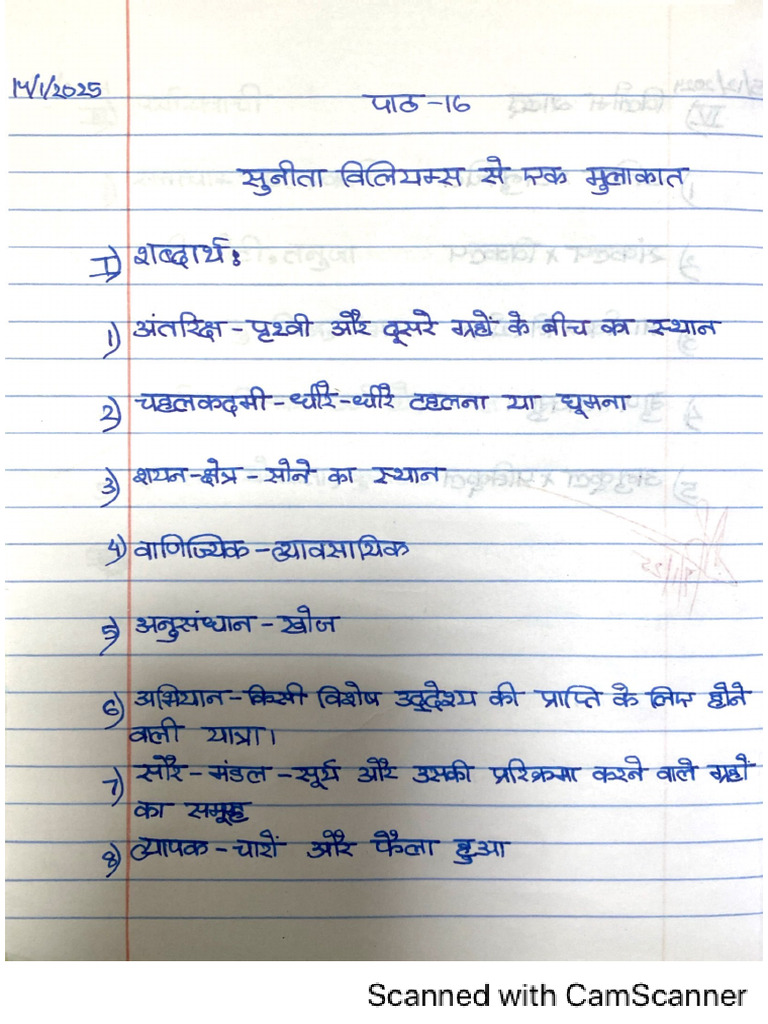 14/1/2025
पाठ -16
सुनीता विलियम्स से एक मुलाकात
I) शब्दार्थ:
1) अंतरिक्ष - पृथ्वी और दूसरे ग्रहों के बीच का स्थान
2) चहलकदमी - धीरे-धीरे टहलना या घूमना
3) शयन-क्षेत्र - सोने का स्थान
4) वाणिज्यिक - व्यावसायिक
5) अनुसंधान - खोज
6) अभियान - किसी विशेष उद्देश्य की प्राप्ति के लिए होने
वाली यात्रा।
7) सौर-मंडल - सूर्य और उसकी परिक्रमा करने वाले ग्रहों
का समूह
8) व्यापक - चारों और फैला हुआ
Scanned with CamScanner